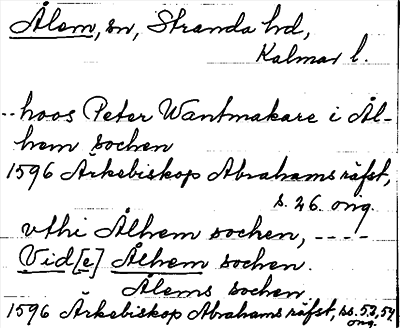 Ålem, sn, Stranda hd,
Kalmar l.
--hoos Peter Wantmakare i Ål-
hem sochen
1596 Ärkebiskop Abrahams räfst,
s. 26. orig.
vthi Ålhem sochen, ----
Vid[e] Ålhem sochen.
Ålems sochen
1596 Ärkebiskop Abrahams räfst, ss. 53, 54
orig.